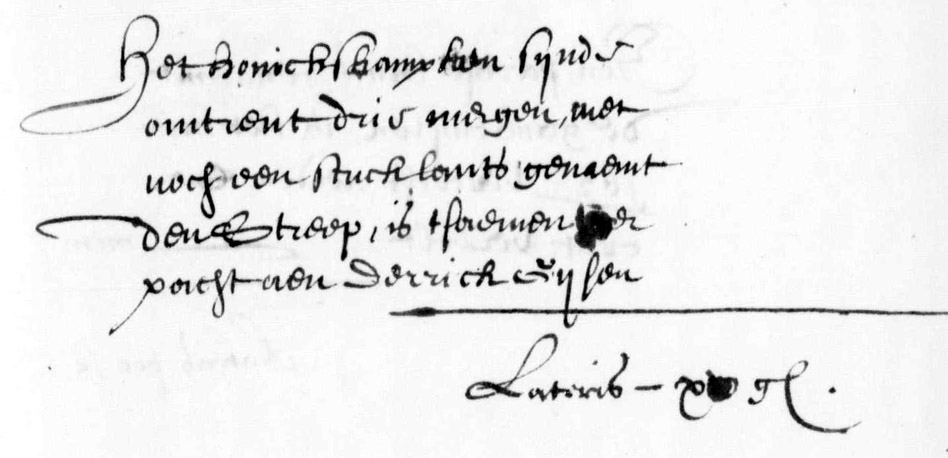 Het honichskampken sijnde
omtrent drie mergen, met
noch een stuck lants genaemt
den Streep, is tsaemen ver
pacht aen Derrick Gijsen
Lateris – gl.